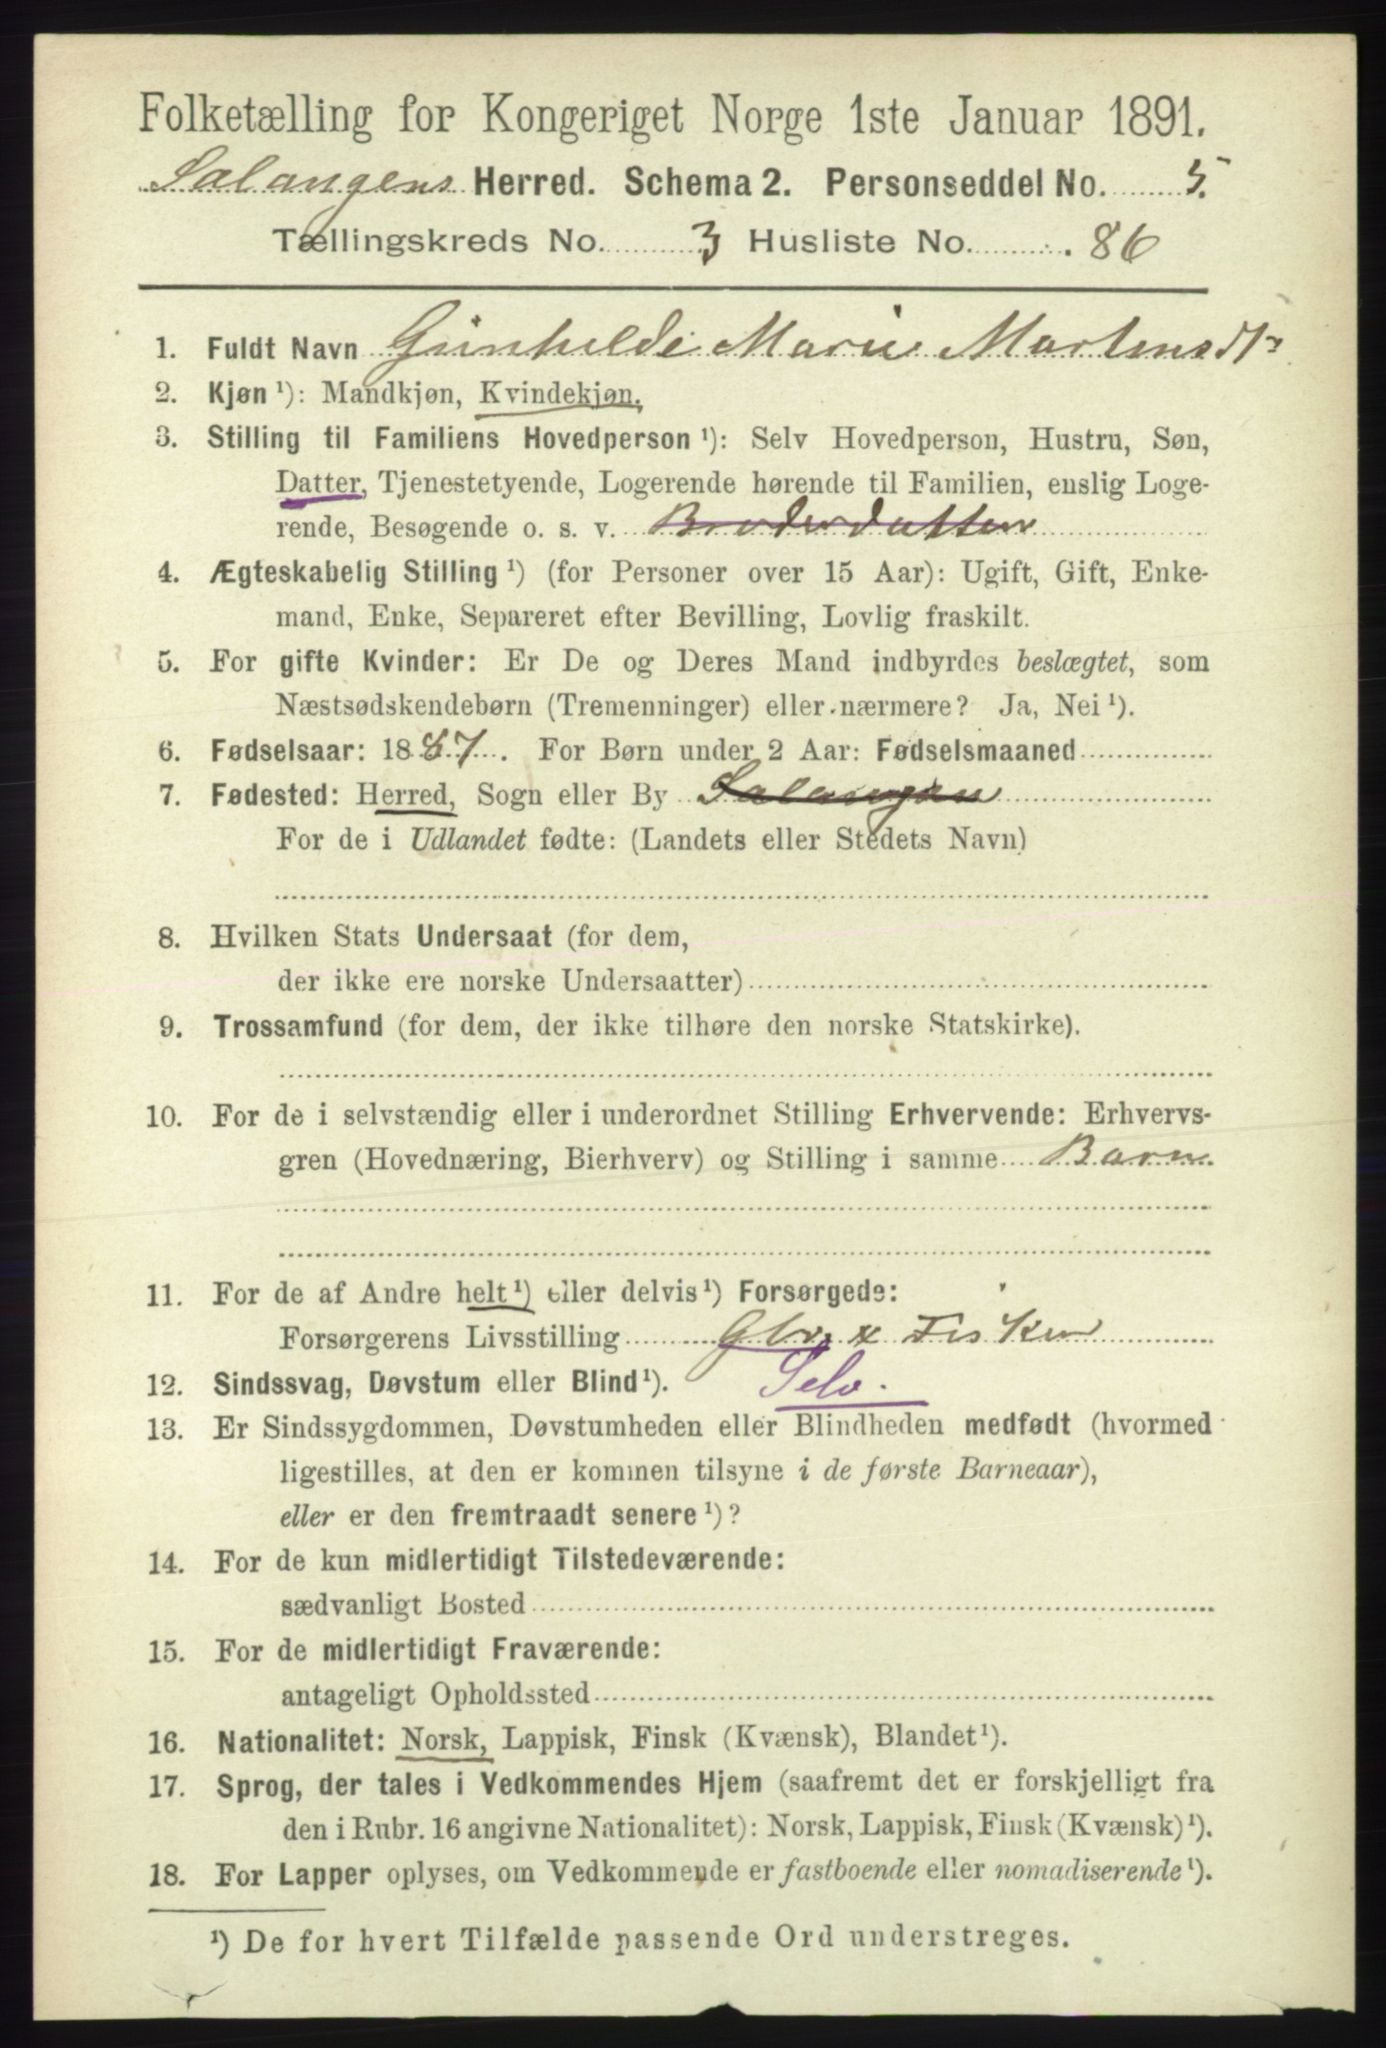 Folketælling for Kongeriget Norge 1ste Januar 1891.
Salangens Herred. Schema 2. Personseddel No. 5.
Tællingskreds No. 3 Husliste No. 86
1. Fuldt Navn Gunhilde Marie Martensdtr
2. Kjøn ¹): Mandkjøn, Kvindekjøn.
3. Stilling til Familiens Hovedperson ¹): Selv Hovedperson, Hustru, Søn,
Datter, Tjenestetyende, Logerende hørende til Familien, enslig Loge-
rende, Besøgende o. s. v. Broderdatter
4. Ægteskabelig Stilling ¹) (for Personer over 15 Aar): Ugift, Gift, Enke-
mand, Enke, Separeret efter Bevilling, Lovlig fraskilt.
5. For gifte Kvinder: Er De og Deres Mand indbyrdes beslægtet, som
Næstsødskendebørn (Tremenninger) eller nærmere? Ja, Nei ¹).
6. Fødselsaar: 1887. For Børn under 2 Aar: Fødselsmaaned
7. Fødested: Herred, Sogn eller By Salangen
For de i Udlandet fødte: (Landets eller Stedets Navn)
8. Hvilken Stats Undersaat (for dem,
der ikke ere norske Undersaatter)
9. Trossamfund (for dem, der ikke tilhøre den norske Statskirke).
10. For de i selvstændig eller i underordnet Stilling Erhvervende: Erhvervs-
gren (Hovednæring, Bierhverv) og Stilling i samme Barn
11. For de af Andre helt ¹) eller delvis ¹) Forsørgede:
Forsørgerens Livsstilling Gbr. x Fisker
12. Sindssvag, Døvstum eller Blind ¹). Selv.
13. Er Sindssygdommen, Døvstumheden eller Blindheden medfødt (hvormed
ligestilles, at den er kommen tilsyne i de første Barneaar),
eller er den fremtraadt senere ¹)?
14. For de kun midlertidigt Tilstedeværende:
sædvanligt Bosted
15. For de midlertidigt Fraværende:
antageligt Opholdssted
16. Nationalitet: Norsk, Lappisk, Finsk (Kvænsk), Blandet ¹).
17. Sprog, der tales i Vedkommendes Hjem (saafremt det er forskjelligt fra
den i Rubr. 16 angivne Nationalitet): Norsk, Lappisk, Finsk (Kvænsk) ¹).
18. For Lapper oplyses, om Vedkommende er fastboende eller nomadiserende ¹).
¹) De for hvert Tilfælde passende Ord understreges.